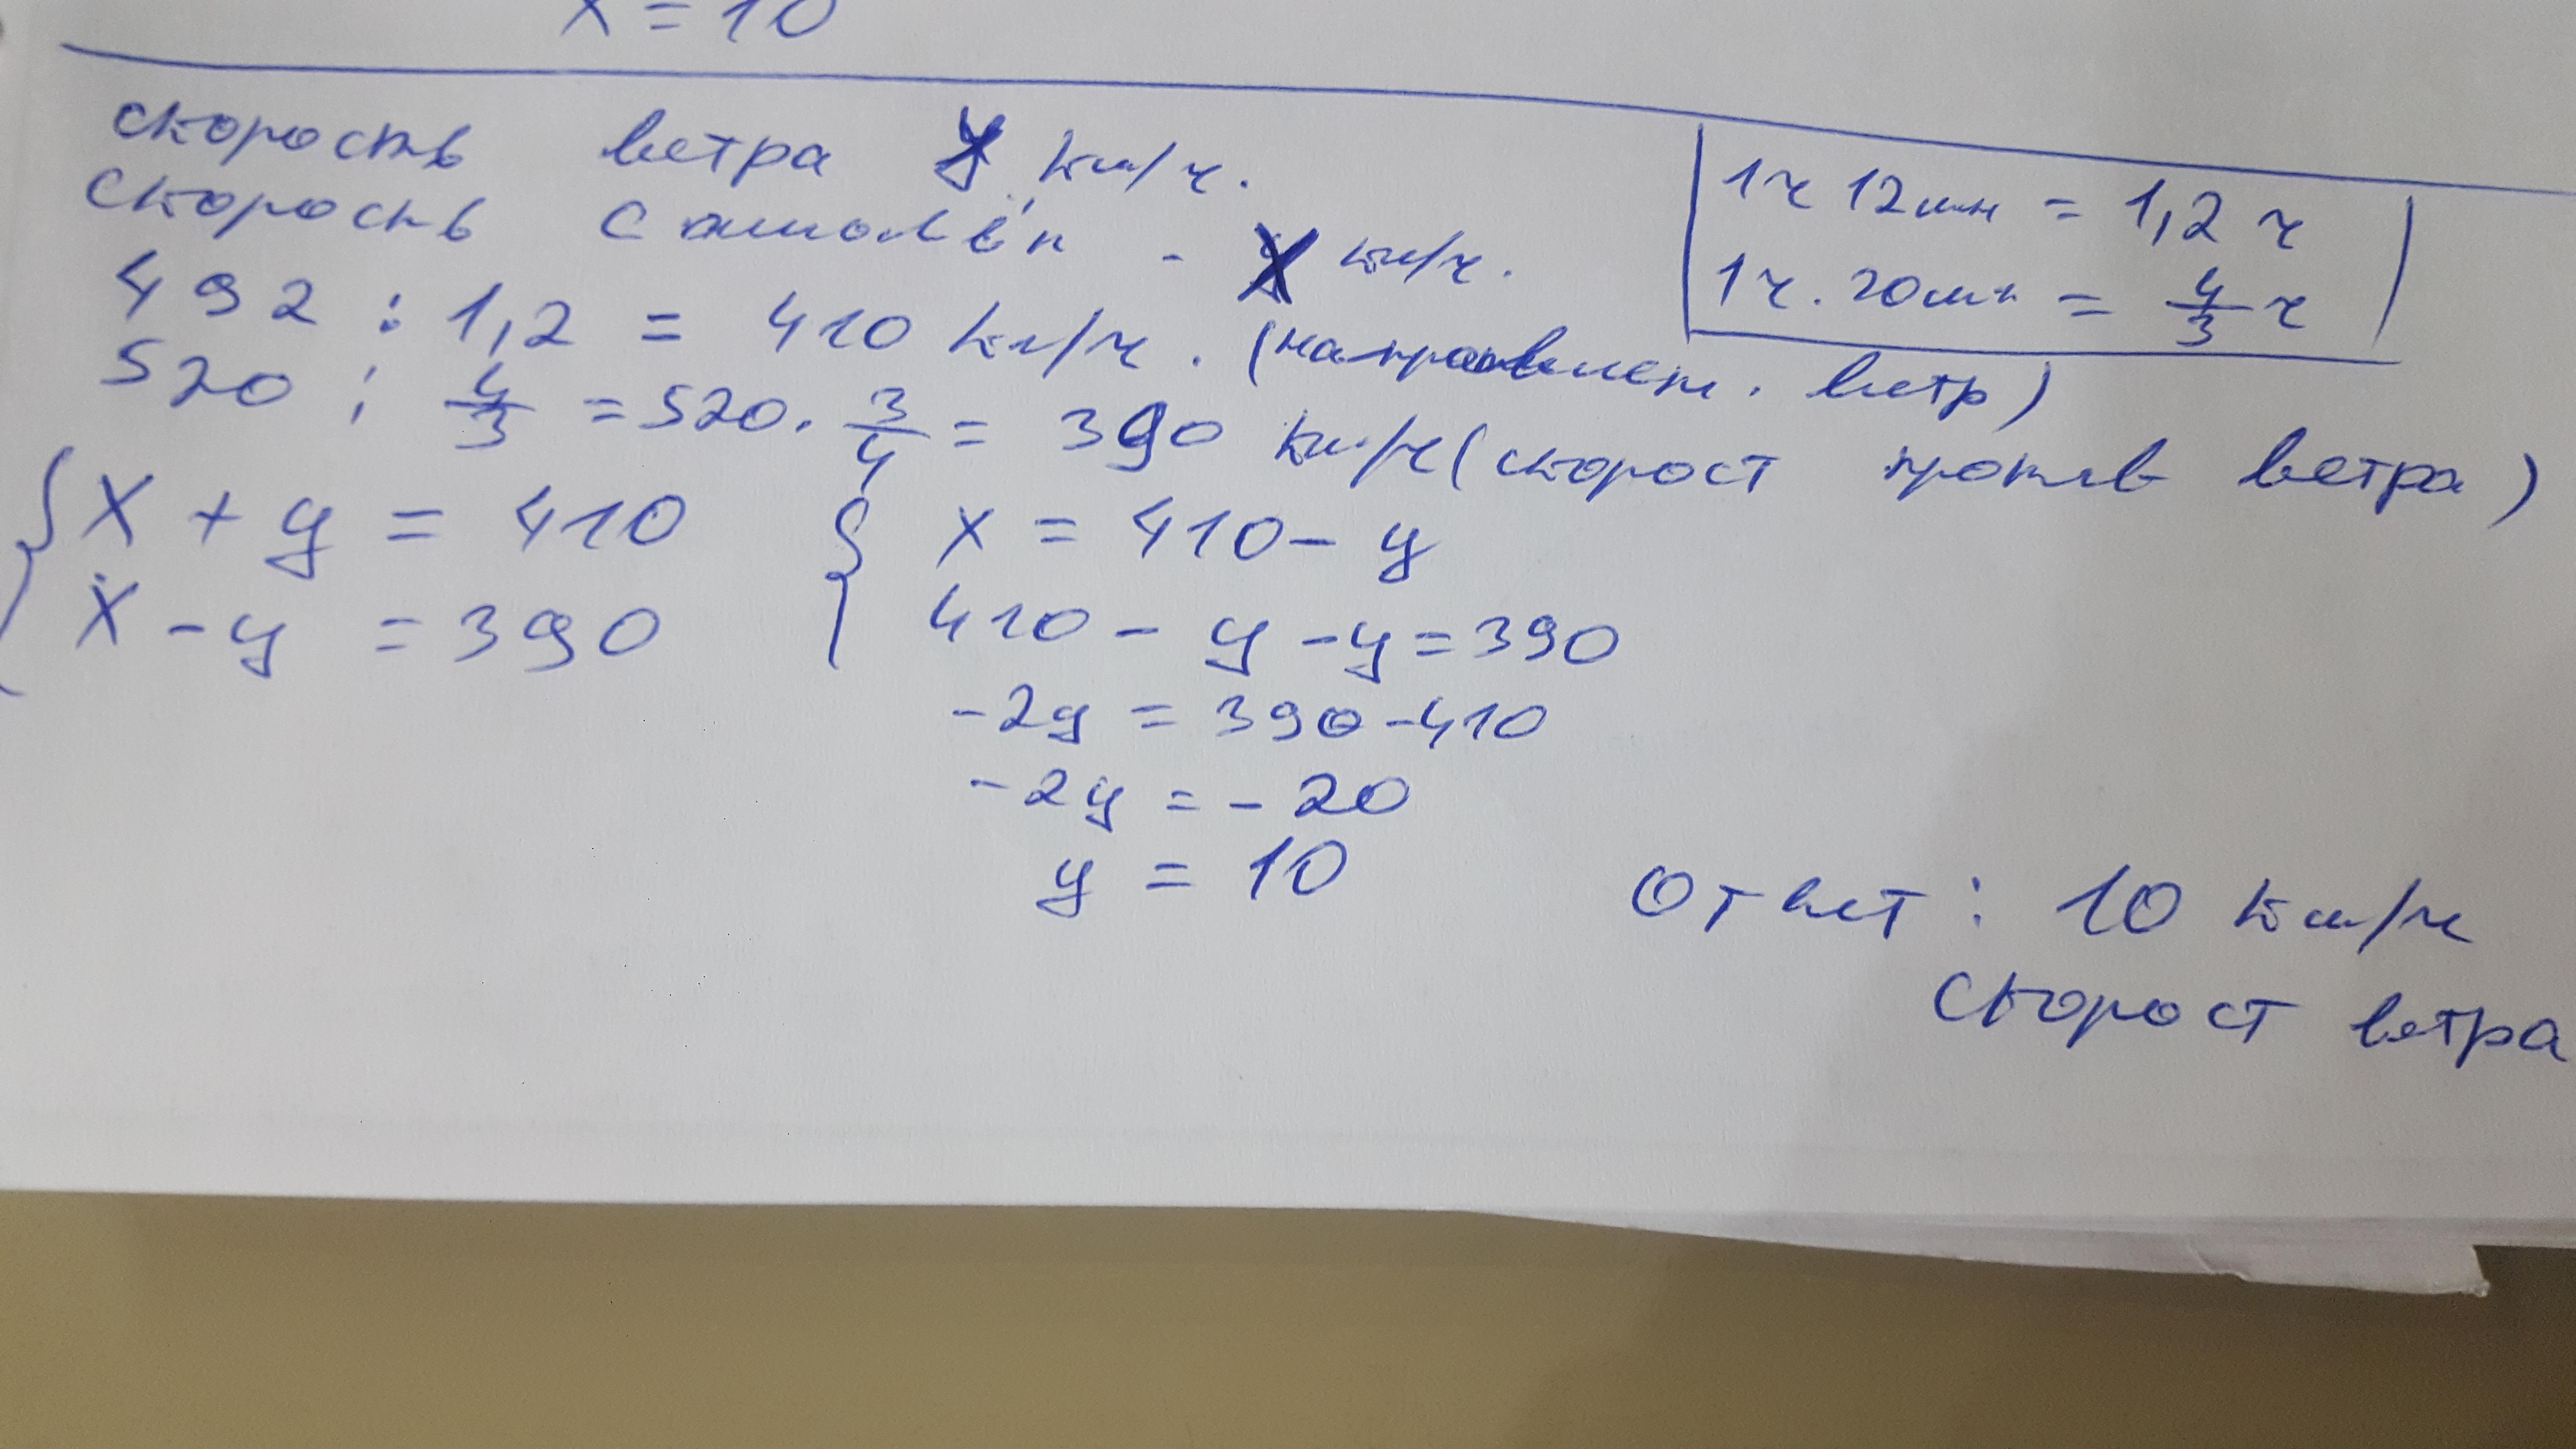 x = 10
скорость ветра y км/ч.
скорость самолёт - x км/ч.
1ч 12мин = 1,2 ч
1ч. 20мин = 4/3 ч
492 : 1,2 = 410 км/ч. (направлен. ветр)
520 : 4/3 = 520 · 3/4 = 390 км/ч (скорост против ветра)
{ x + y = 410
x - y = 390
{ x = 410 - y
410 - y - y = 390
-2y = 390 - 410
-2y = -20
y = 10
Ответ : 10 км/ч
скорост ветра